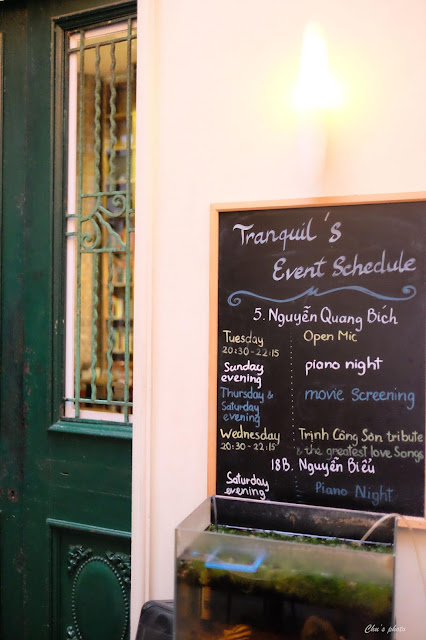 Tranquil's
Event Schedule
5. Nguyễn Quang Bích
Tuesday
20:30-22:15
Open Mic
Sunday
evening
piano night
Thursday &
Saturday
evening
movie Screening
Wednesday
20:30-22:15
Trịnh Công Sơn tribute
& the greatest love Songs
18B. Nguyễn Biểu
Saturday
evening
Piano Night
Chu's photo